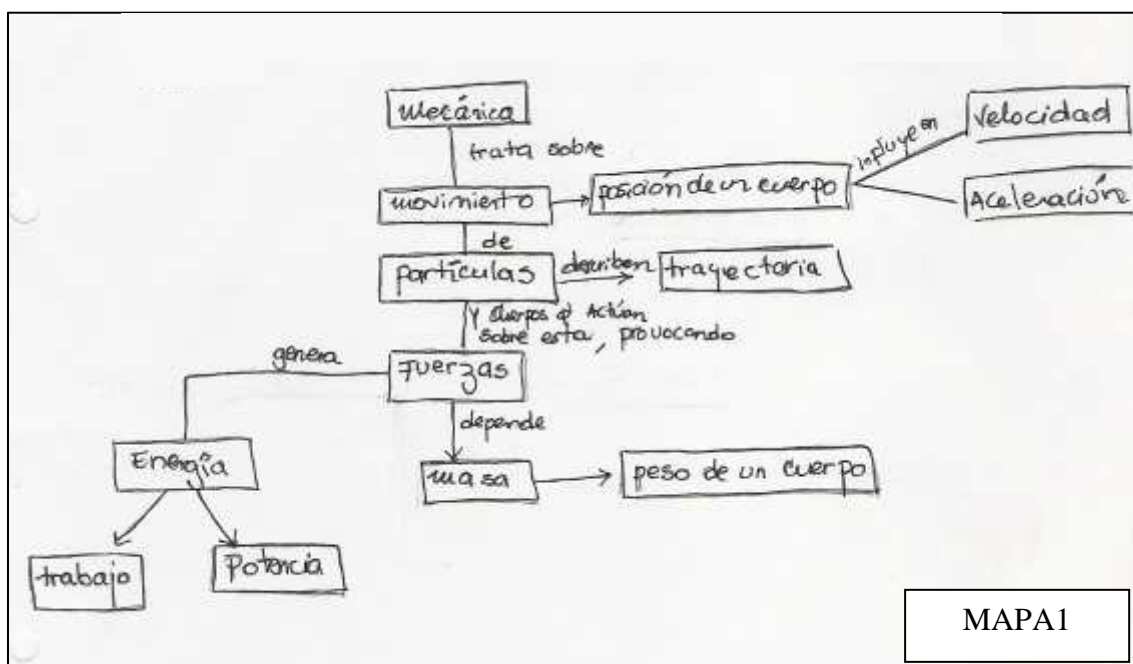 Mecánica
trata sobre
movimiento
posición de un cuerpo
influye en
Velocidad
Aceleración
de
partículas
describen
trayectoria
y cuerpos q' Actúan
sobre esta, provocando
genera
Fuerzas
depende
Energía
masa
peso de un cuerpo
trabajo
Potencia
MAPA1